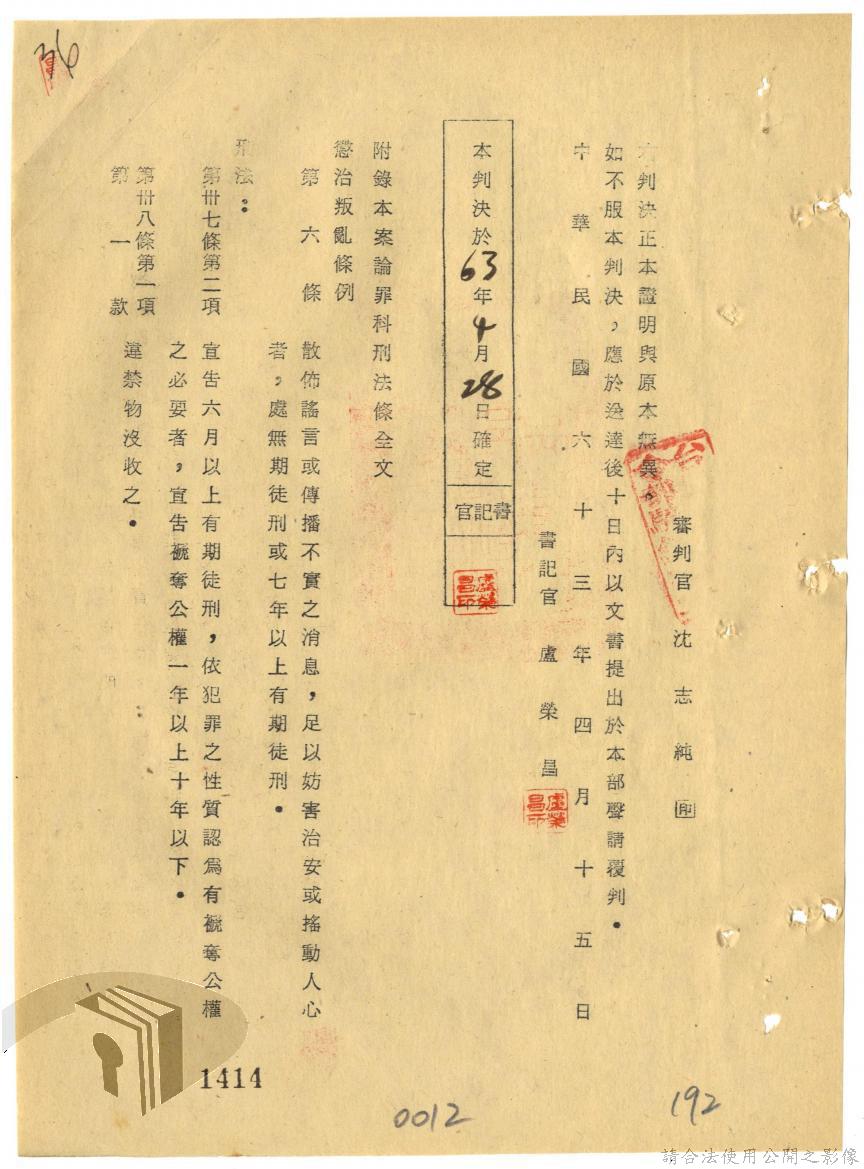 審判官 沈志純 印
本判決正本證明與原本無異。
如不服本判決，應於送達後十日內以文書提出於本部聲請覆判。
中華民國六十三年四月十五日
書記官 盧榮昌
盧榮昌印
本判決於63年4月28日確定
書記官
盧榮昌印
附錄本案論罪科刑法條全文
懲治叛亂條例
第六條 散佈謠言或傳播不實之消息，足以妨害治安或搖動人心
者，處無期徒刑或七年以上有期徒刑。
刑法：
第卅七條第二項 宣告六月以上有期徒刑，依犯罪之性質認為有褫奪公權
之必要者，宣告褫奪公權一年以上十年以下。
第卅八條第一項
第一款 違禁物沒收之。
1414
0012
192
請合法使用公開之影像